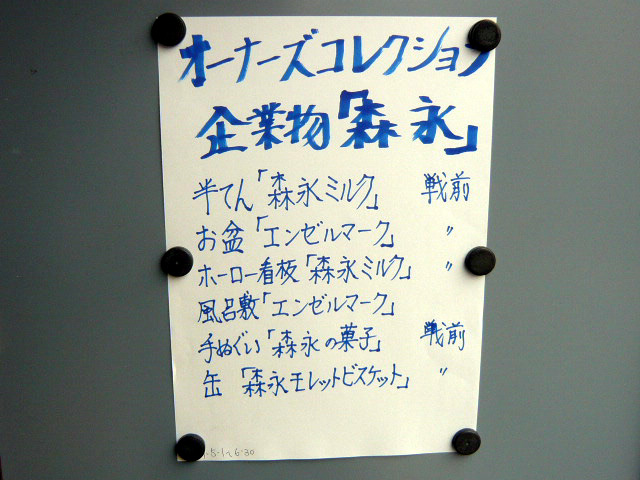 オーナーズコレクション
企業物「森永」
半てん「森永ミルク」 戦前
お盆「エンゼルマーク」 〃
ホーロー看板「森永ミルク」 〃
風呂敷「エンゼルマーク」
手ぬぐい「森永の菓子」 戦前
缶 「森永モレットビスケット」 〃